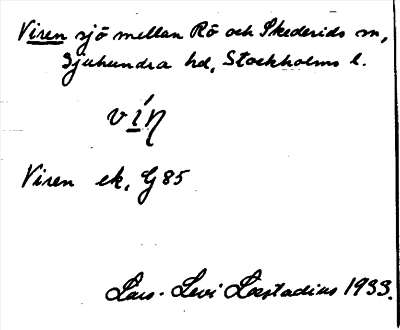 Viren sjö mellan Rö och Skederids sn,
Sjuhundra hd, Stockholms l.
vín
Viren ek, G 85
Lars-Levi Læstadius 1933.